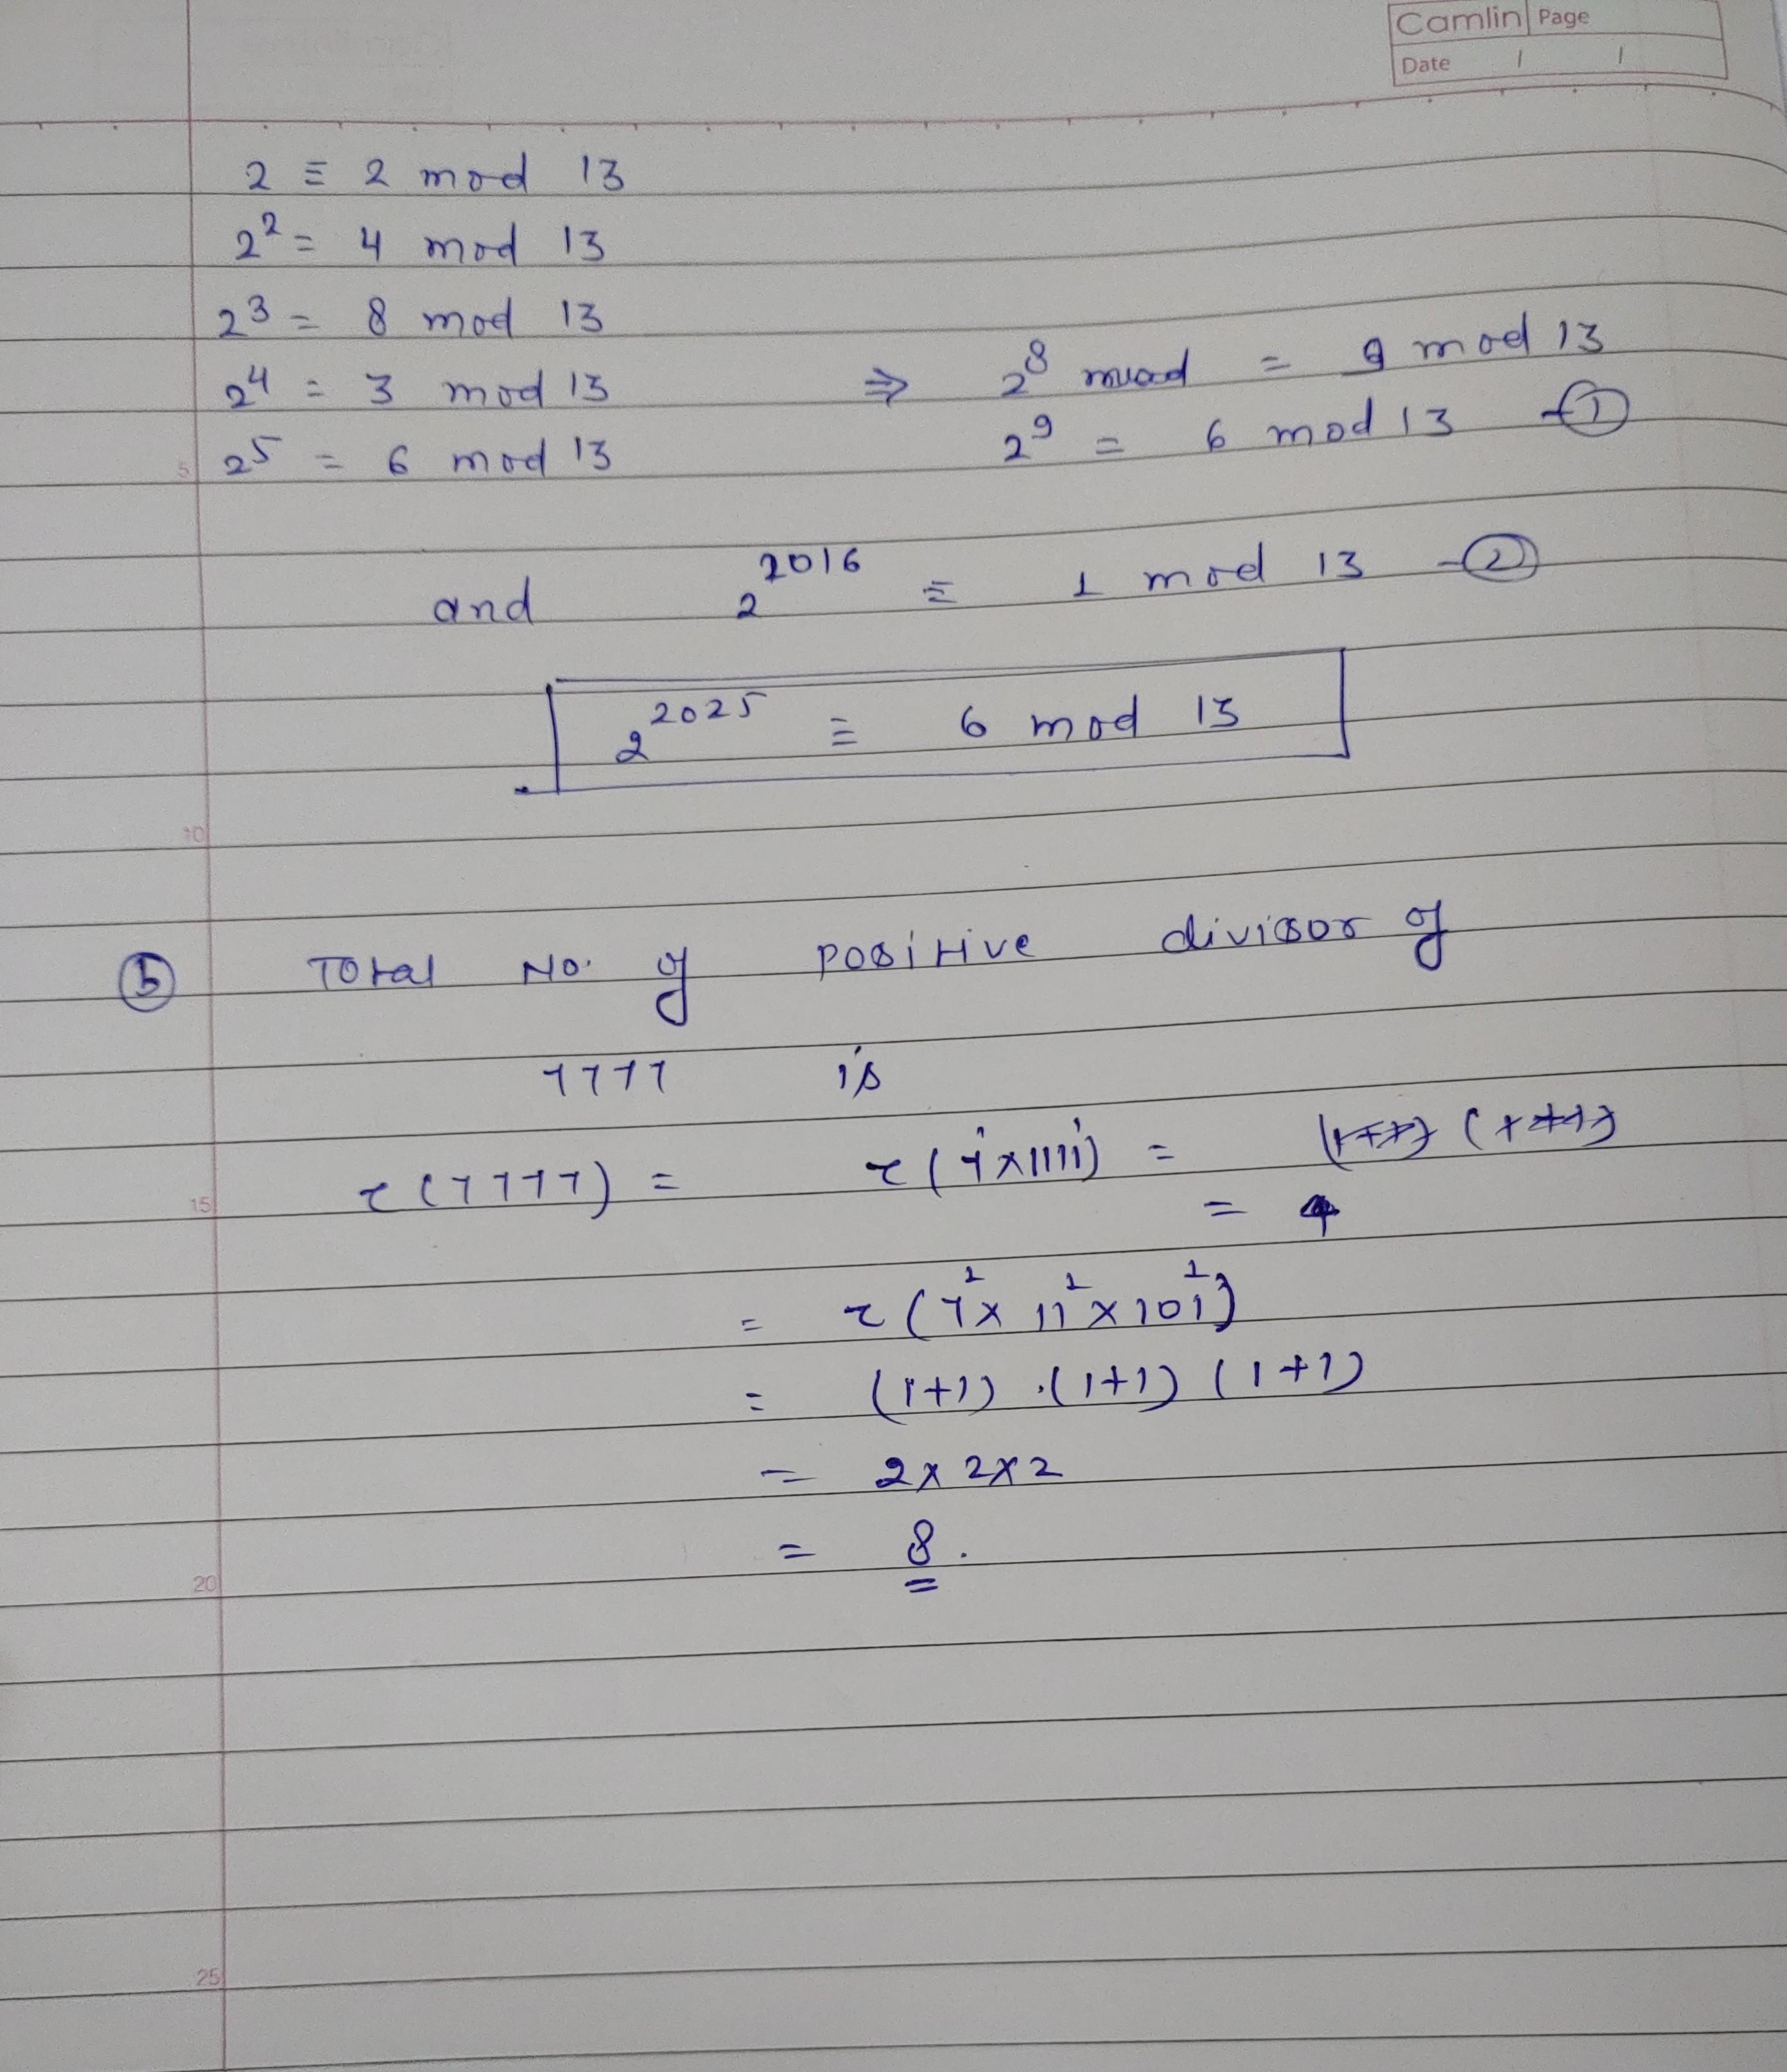 Camlin Page
Date / /
2 ≡ 2 mod 13
2² = 4 mod 13
2³ = 8 mod 13
2⁴ = 3 mod 13 ⇒ 2⁸ = 9 mod 13
5 2⁵ = 6 mod 13 2⁹ = 6 mod 13 -①
and 2²⁰¹⁶ ≡ 1 mod 13 -②
2²⁰²⁵ ≡ 6 mod 13
10
⑤ Total No. of positive divisor of
7777 is
15 τ(7777) = τ(7¹×1111¹) =
= 4
= τ(7¹×11¹×101¹)
= (1+1).(1+1)(1+1)
= 2×2×2
= 8.
20
25